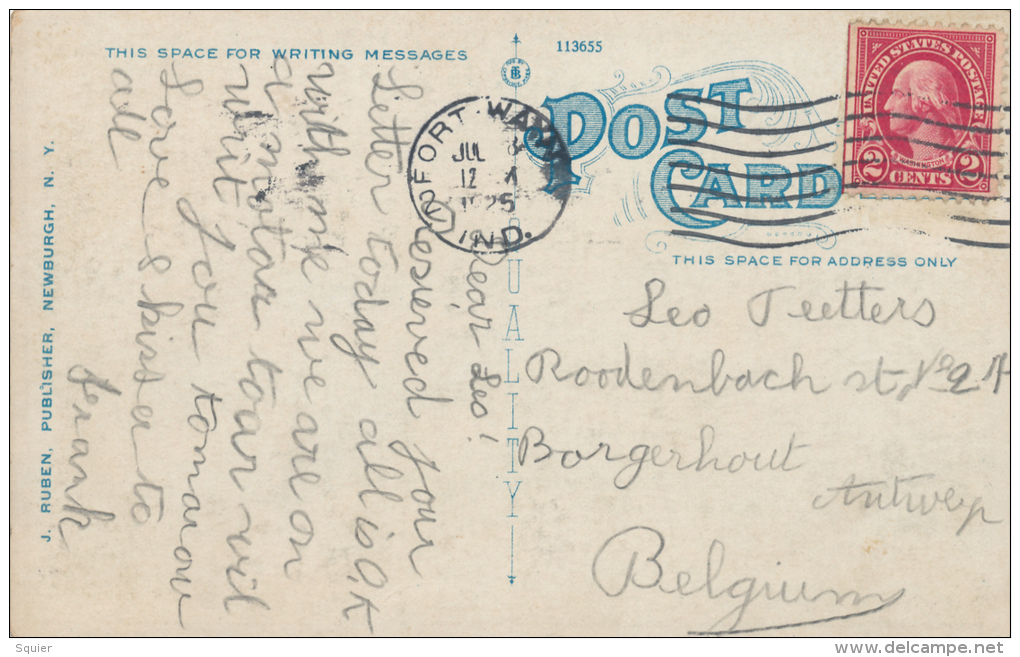 THIS SPACE FOR WRITING MESSAGES
113655
POST
CARD
UNITED STATES POSTAGE
WASHINGTON
2 CENTS 2
FORT WAYNE
JUL
12 M
1925
IND.
QUALITY
THIS SPACE FOR ADDRESS ONLY
Dear Leo!
I reseeved your
Letter today all is O.K
with me we are on
a motar toar wil
writ you tomarow
Love & kisses to
all
Frank
Leo Teetters
Roodenbach st, No 2
Borgerhout
Antwerp
Belgium
J. RUBEN, PUBLISHER, NEWBURGH, N. Y.
Squier
delcampe.net